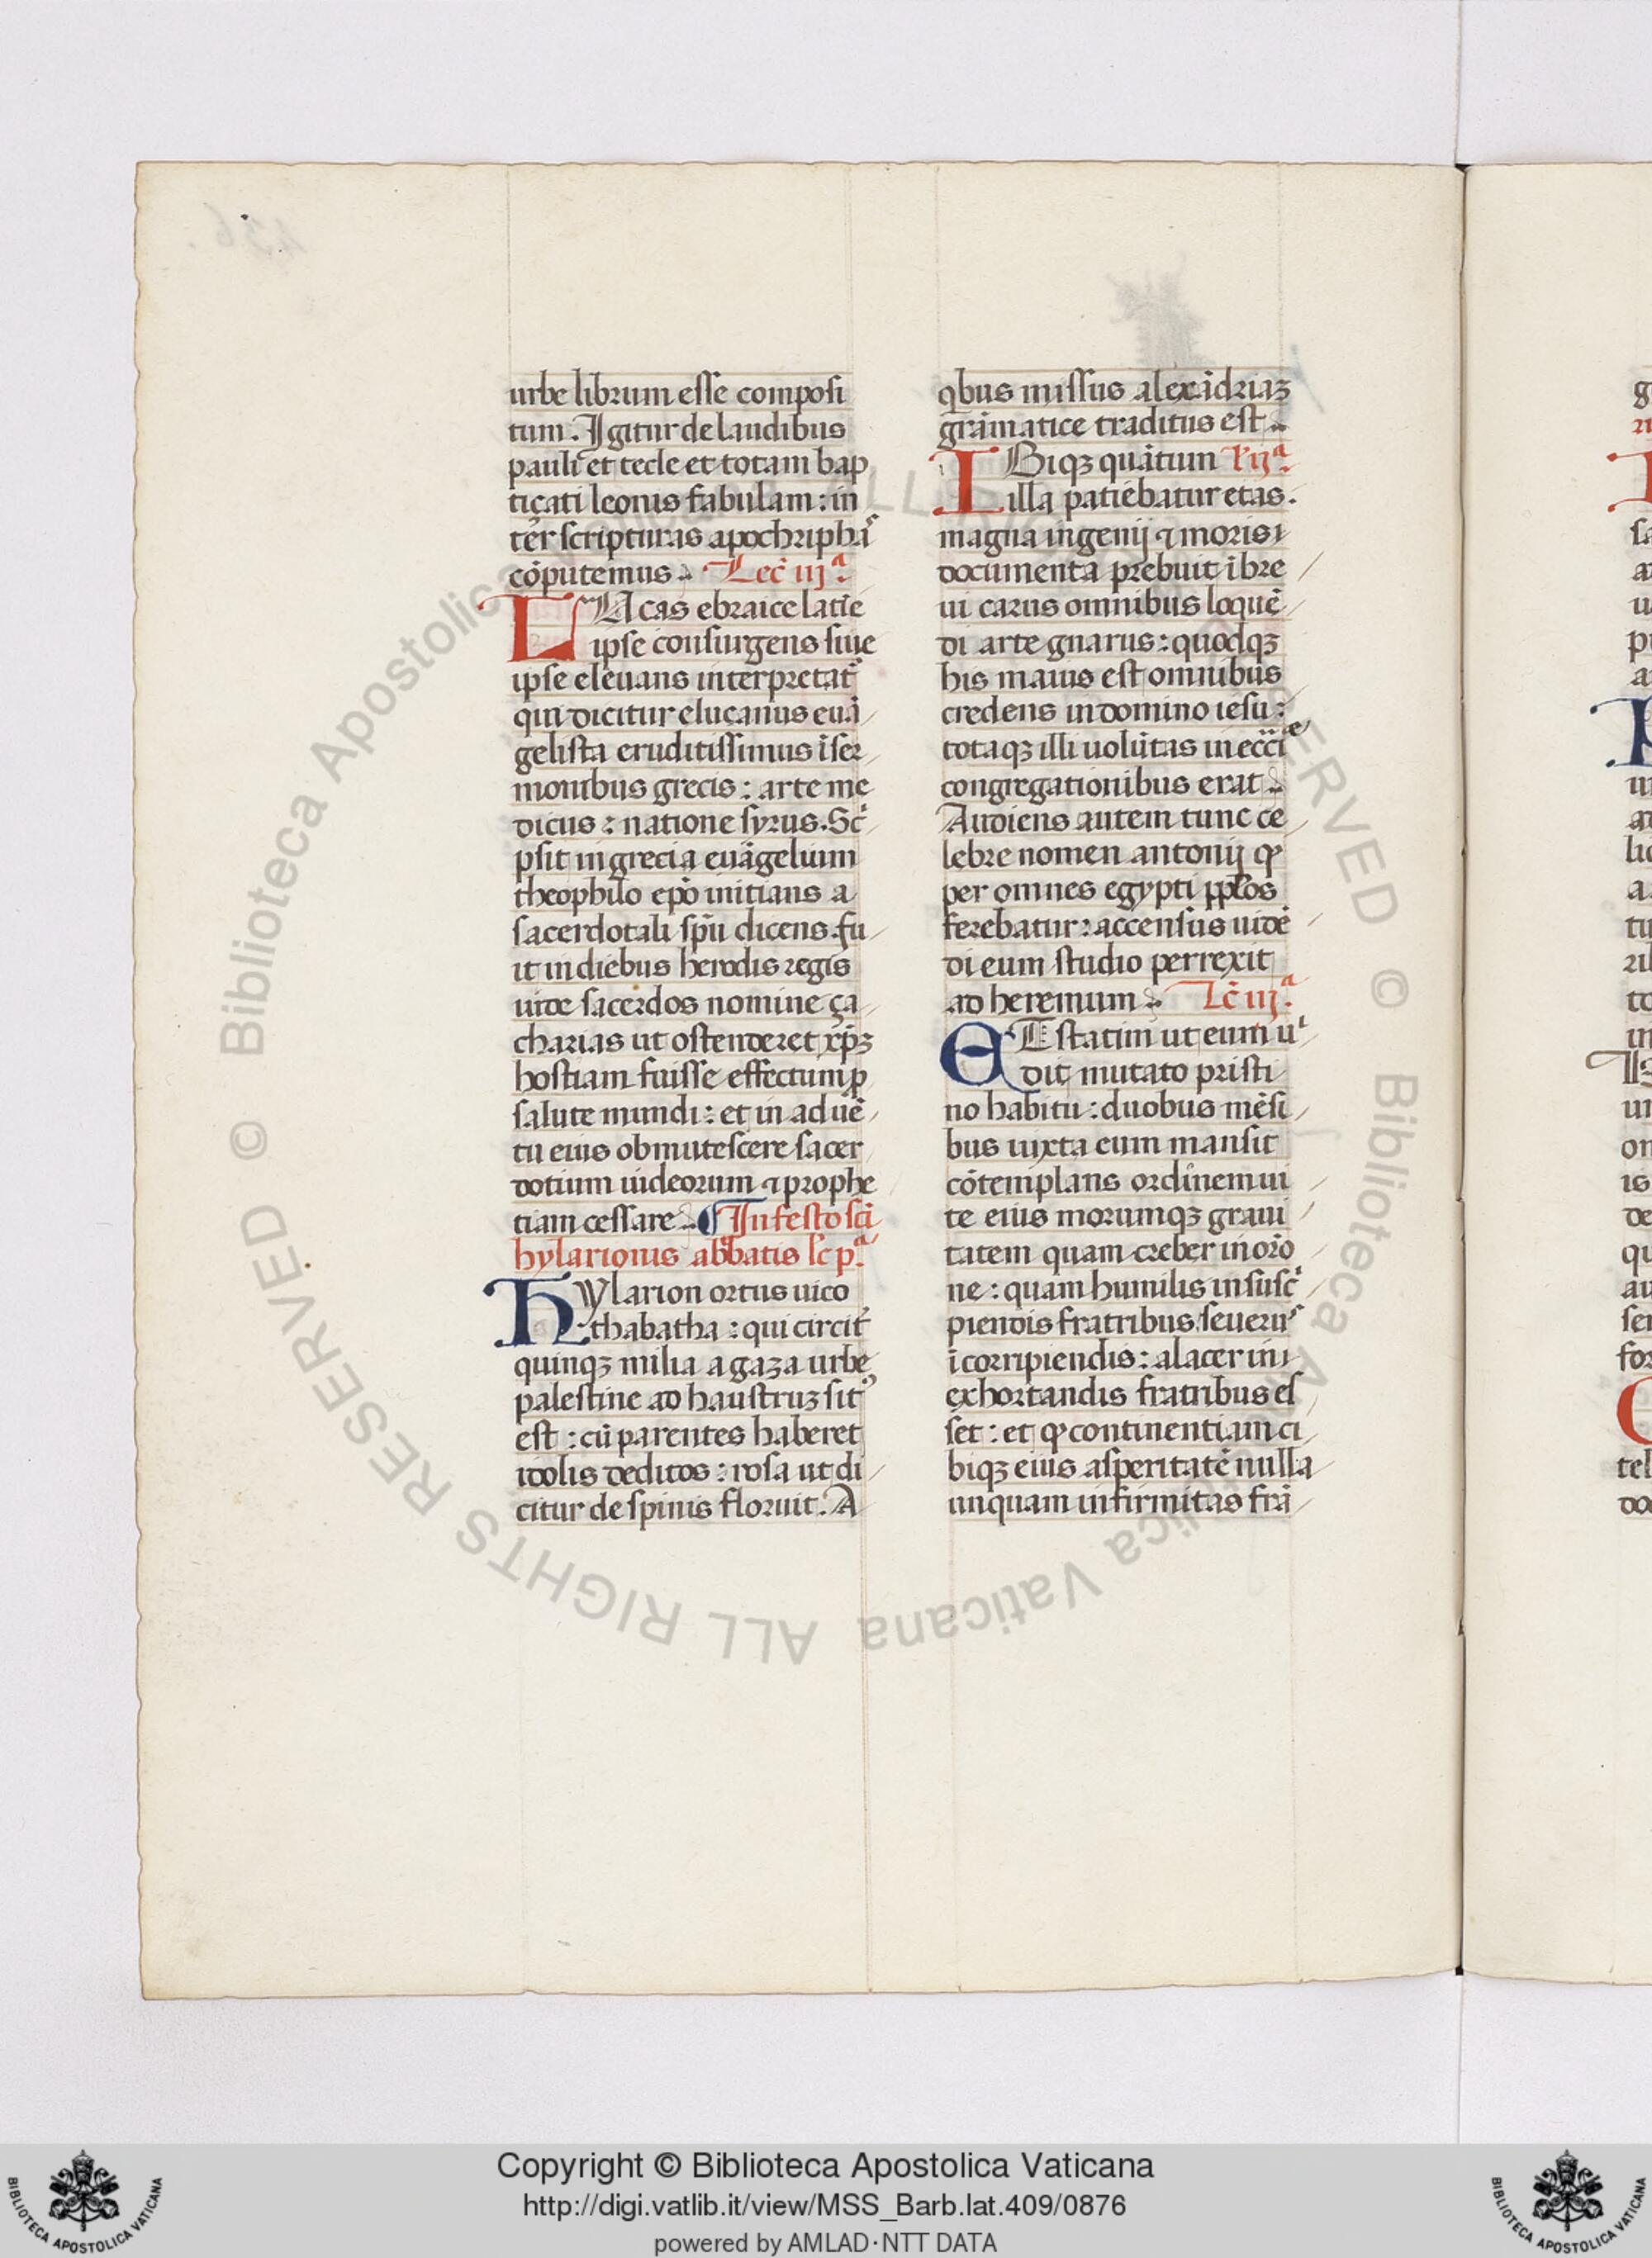 urbe librum esse composi
tum. Igitur de laudibus
pauli et tecle et totam bap
tiçati leonis fabulam : in
ter scripturas apochriphã
cõputemus Lec̃ iijª.
LUcas ebraice latie
ipse consurgens siue
ipse eleuans interpretat̃
qui dicitur elucanus euã
gelista eruditissimus ĩ ser
monibus grecis : arte me
dicus : natione syrus. Sc̃
psit in grecia euãgelium
theophilo ep̃o initians a
sacerdotali sp̃u dicens. fu
it in diebus herodis regis
iude sacerdos nomine ça
charias ut ostenderet xp̃ꝫ
hostiam fuisse effectum ꝓ
salute mundi : et in aduẽ
tu eius obmutescere sacer
dotium iudeorum ⁊ prophe
tiam cessare. ¶ In festo sc̃i
hylarionis abbatis lc̃ pª.
HYlarion ortus uico
thabatha : qui circit̃
quinqꝫ milia a gaza urbe
palestine ad haustruꝫ sitꝰ
est : cũ parentes haberet
idolis deditos : rosa ut di
citur de spinis floruit. A
qbus missus alexãdriaꝫ
grãmatice traditus est
IBiqꝫ quãtum l'ijª.
illa patiebatur etas.
magna ingenij ⁊ moris
documenta prebuit ĩ bre
ui carus omnibus loquẽ
di arte gnarus : quodqꝫ
his maius est omnibus
credens in domino iesu :
totaqꝫ illi uolũtas in ecc̃ie
congregationibus erat
Audiens autem tunc ce
lebre nomen antonij ꝙ
per omnes egypti pp̃los
ferebatur : accensus uidẽ
di eum studio perrexit
ad heremum Lc̃ iijª.
ET statim ut eum ui
dit mutato pristi
no habitu : duobus mẽsi
bus iuxta eum mansit
cõtemplans ordinem ui
te eius morumqꝫ graui
tatem quam creber in or̃o
ne : quam humilis in susc̃
piendis fratribus, seuerus
ĩ corripiendis : alacer in
exhortandis fratribus es
set : et ꝙ continentiam ci
biqꝫ eius asperitatẽ nulla
unquam infirmitas frã
Copyright © Biblioteca Apostolica Vaticana
http://digi.vatlib.it/view/MSS_Barb.lat.409/0876
powered by AMLAD·NTT DATA
BIBLIOTECA APOSTOLICA VATICANA
BIBLIOTECA APOSTOLICA VATICANA
© Biblioteca Apostolica Vaticana ALL RIGHTS RESERVED © Biblioteca Apostolica Vaticana ALL RIGHTS RESERVED